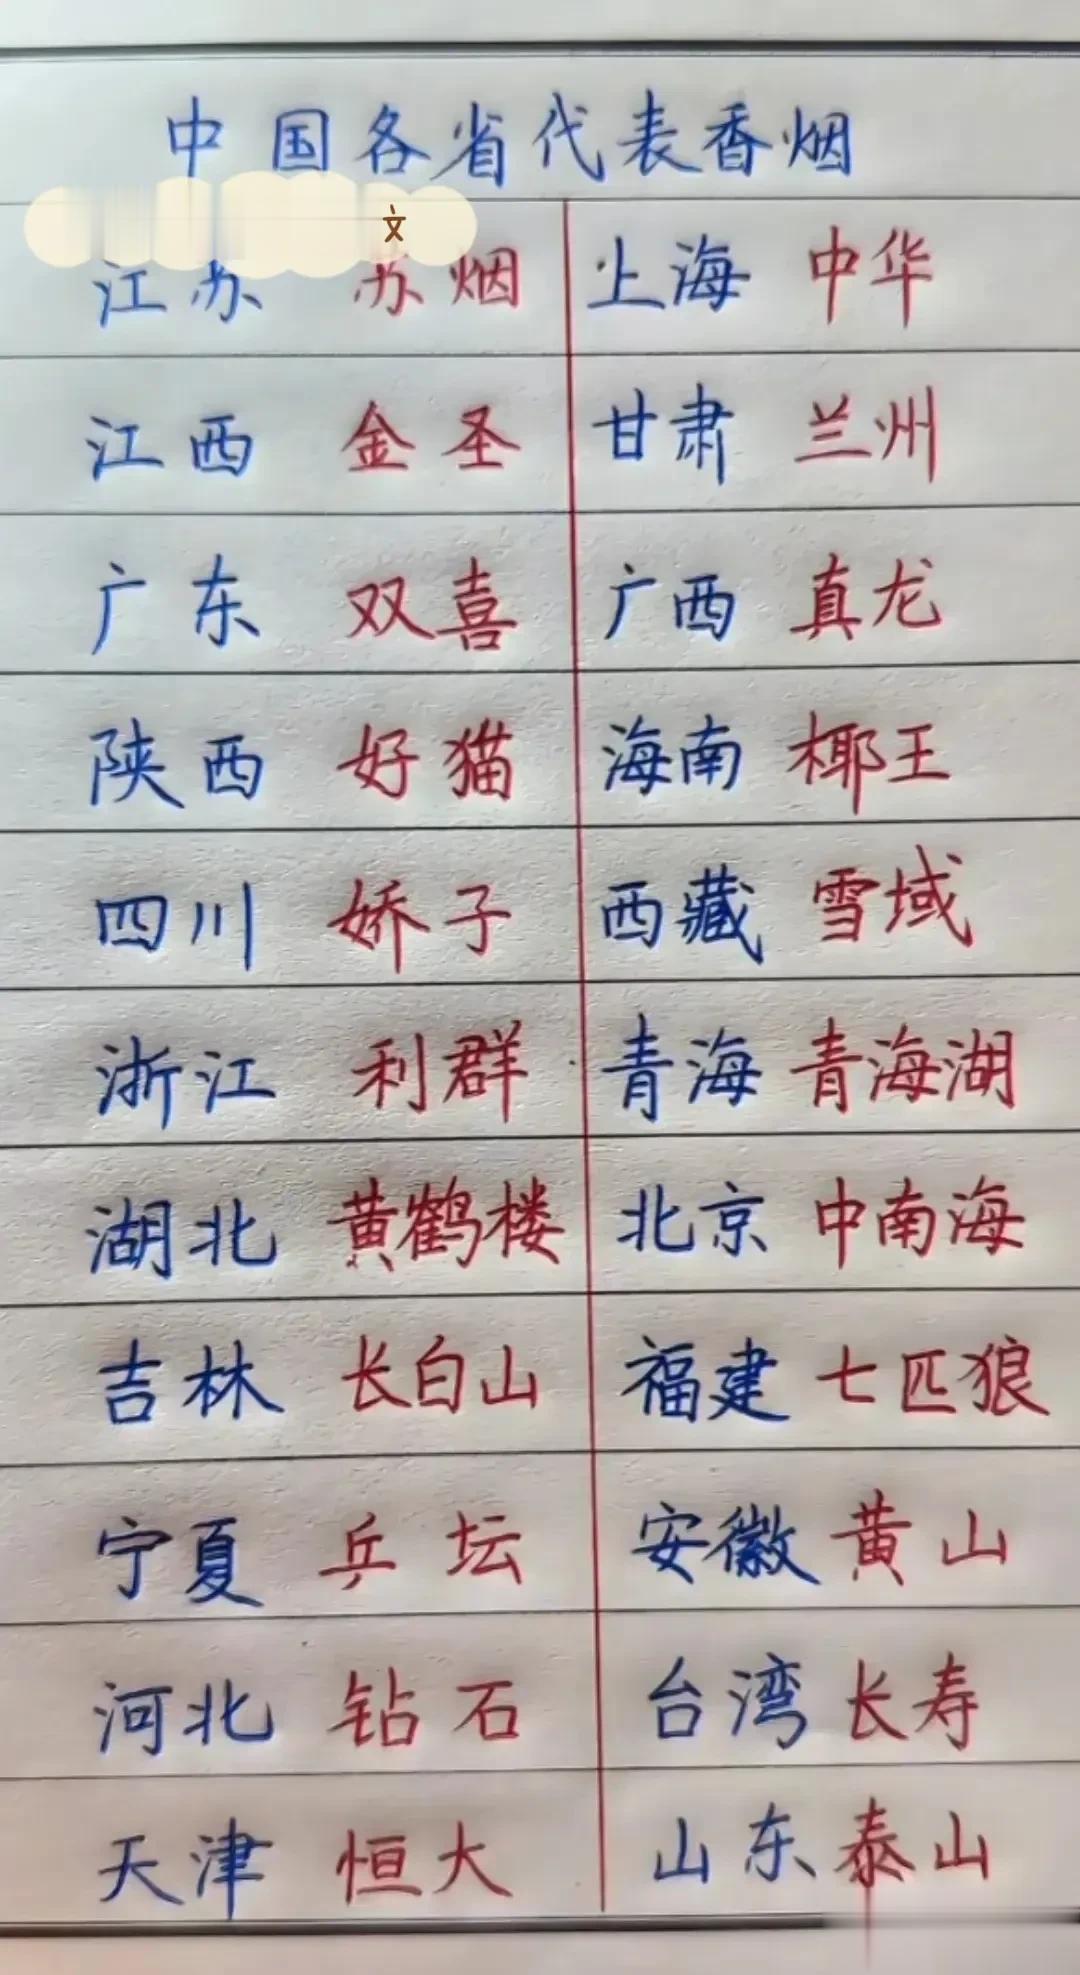 中国各省代表香烟
文
江苏 苏烟 上海 中华
江西 金圣 甘肃 兰州
广东 双喜 广西 真龙
陕西 好猫 海南 椰王
四川 娇子 西藏 雪域
浙江 利群 青海 青海湖
湖北 黄鹤楼 北京 中南海
吉林 长白山 福建 七匹狼
宁夏 乒坛 安徽 黄山
河北 钻石 台湾 长寿
天津 恒大 山东 泰山